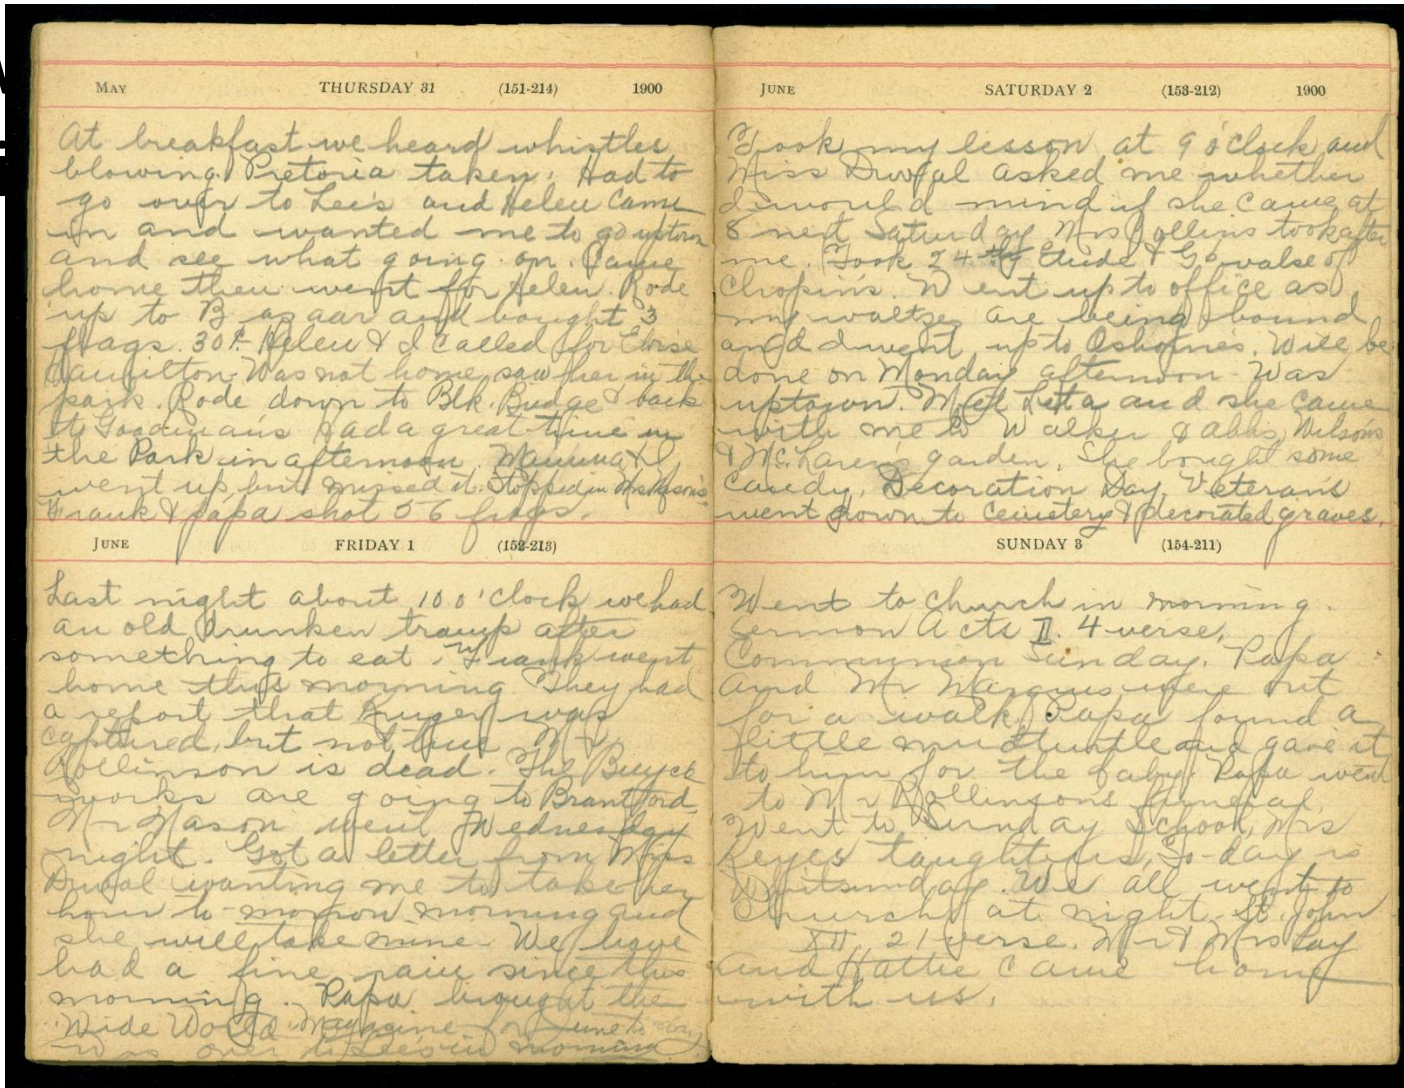 May THURSDAY 31 (151-214) 1900
At breakfast we heard whistles
blowing. Pretoria taken. Had to
go over to Lee's and Helen Came
in and wanted me to go uptown
and see what going on. Came
home then went for Helen. Rode
up to Bazaar and bought 3
flags. 30¢. Helen & I called for Eloise
Hamilton. Was not home, saw her in the
park. Rode down to Blk. Bridge & back
to Goodman's had a great time in
the Park in afternoon. Mamma & I
went up, but missed it. Stopped in Mrs Mason's
Frank & papa shot 56 frogs.
June FRIDAY 1 (152-213)
Last night about 10 o'clock we had
an old drunken tramp after
something to eat. Frank went
home this morning They had
a report that Kruger was
captured, but not true Mr.
Rollinson is dead. The Bicycle
works are going to Brantford.
Mr Mason went Wednesday
night. Got a letter from Miss
Duval wanting me to take her
hour to-morrow morning and
she will take mine. We have
had a fine rain since this
morning. Papa brought the
Wide World Magazine for June to day
Was over to Lee's in morning.
June SATURDAY 2 (153-212) 1900
Took my lesson at 9 o'clock and
Miss Duval asked me whether
I would mind if she came at
8 next Saturday Mrs Rollins took after
me. Took 24th Etude & Go valse of
Chopin's. Went up to office as
my waltzes are being bound
and I went up to Osborne's. Will be
done on Monday afternoon. Was
uptown. Met Leta and she came
with me to Walker & Abbs, Wilson's
& McLaren's garden. She bought some
Candy. Decoration Day, Veterans
went down to Cemetery & decorated graves.
SUNDAY 3 (154-211)
Went to church in morning.
Sermon Acts II. 4 verse.
Communion Sunday. Papa
and Mr Marquis were out
for a walk, Papa found a
little mudturtle and gave it
to him for the baby. Papa went
to Mr Rollinson's funeral.
Went to Sunday School, Mrs
Keyes taught us, To-day is
Whitsunday. We all went to
Church at night St. John
XII. 21 verse. Mr & Mrs Lay
and Hattie came home
with us.